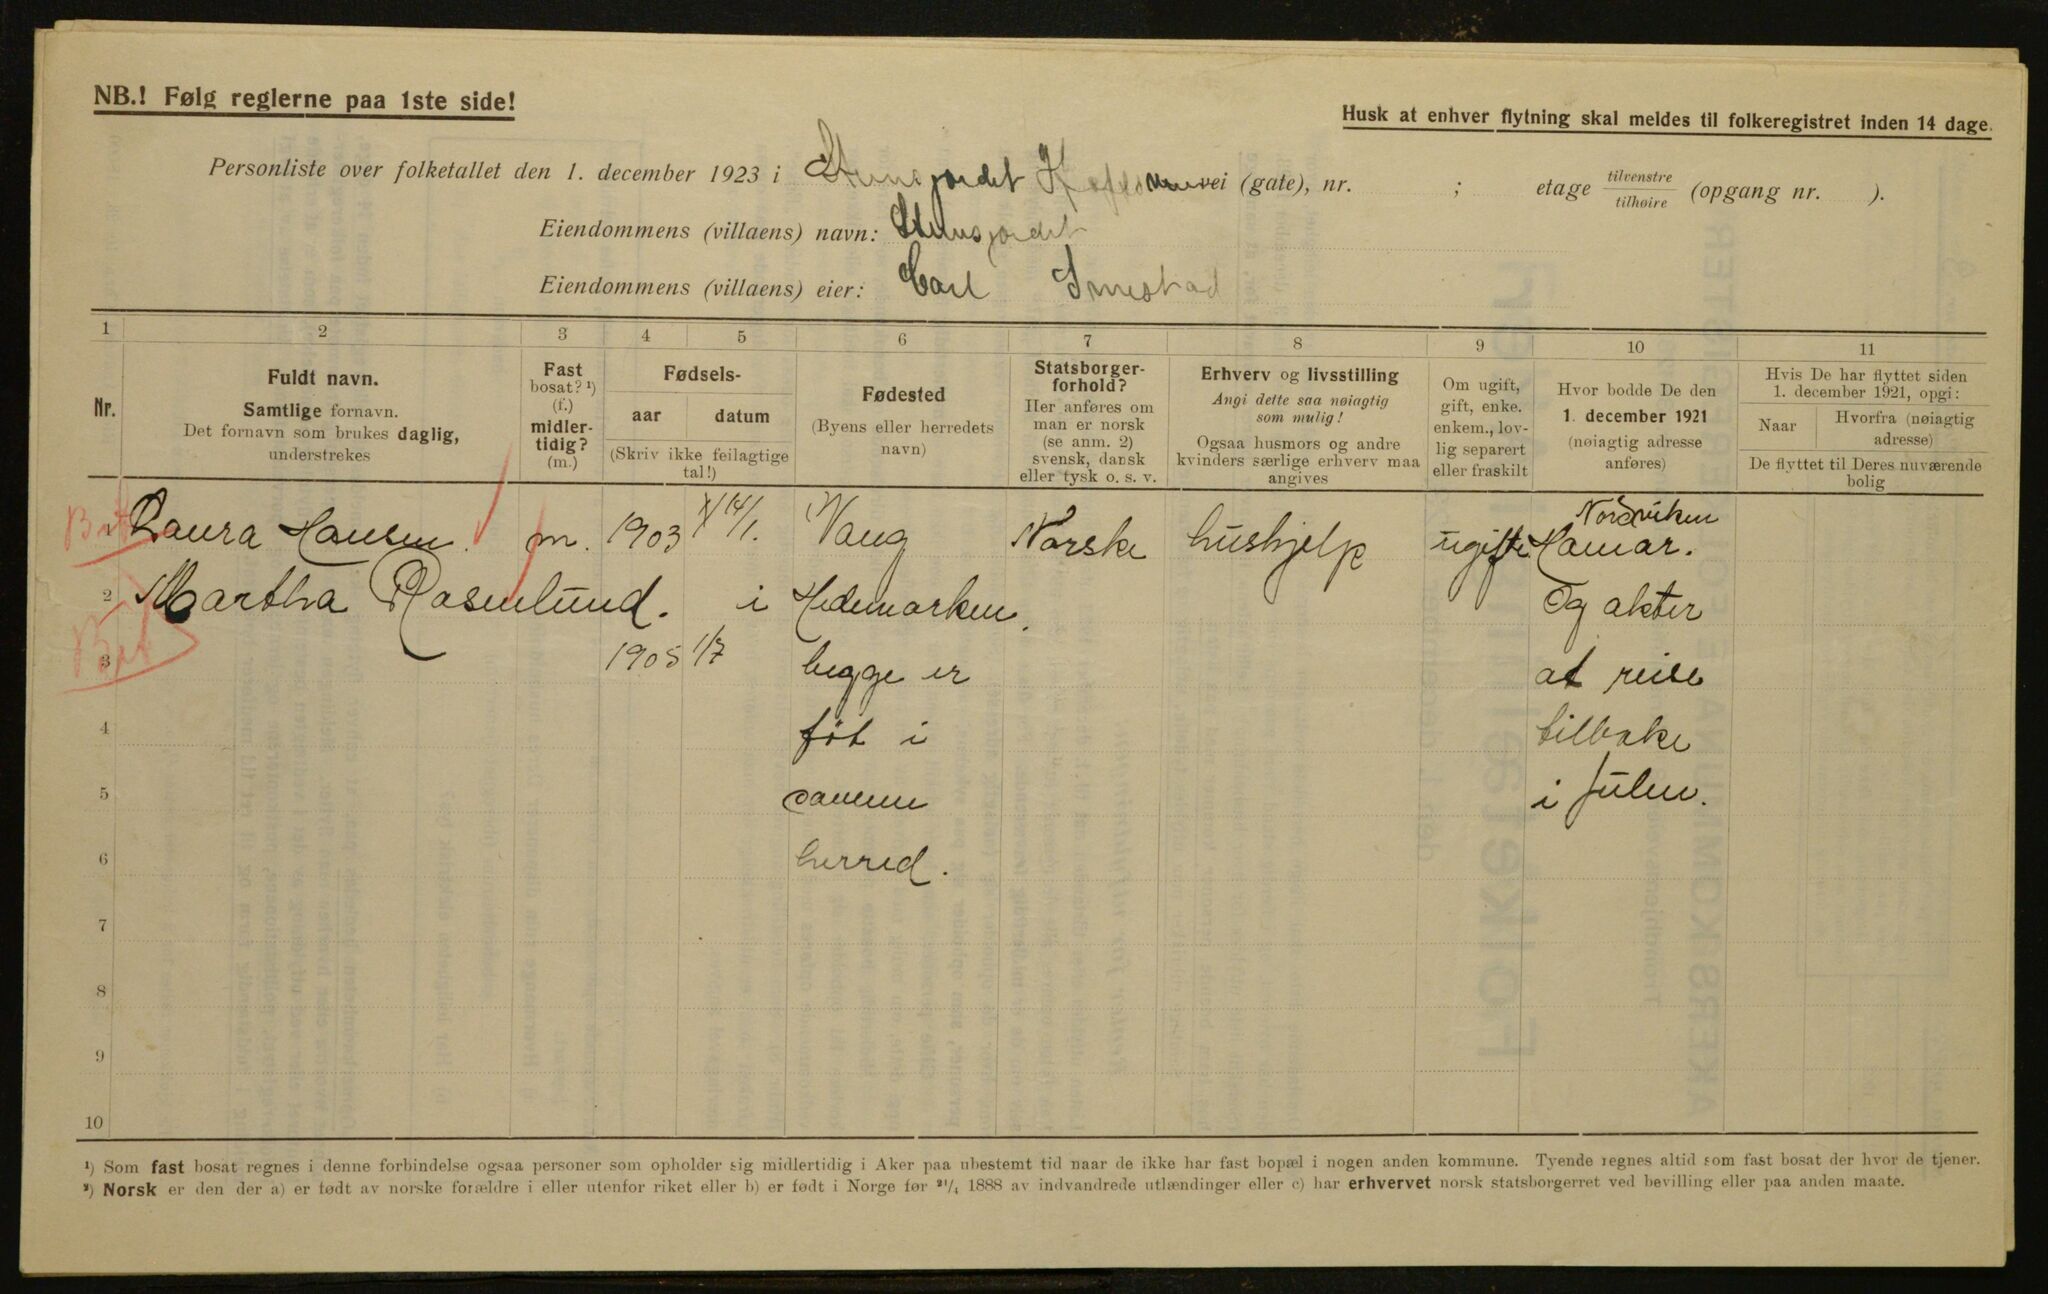 NB.! Følg reglerne paa 1ste side!
Husk at enhver flytning skal meldes til folkeregistret inden 14 dage.
Personliste over folketallet den 1. december 1923 i Stensjordet vei (gate), nr. ; etage tilvenstre tilhøire (opgang nr. ).
Eiendommens (villaens) navn: Stensjordet
Eiendommens (villaens) eier: Carl Smestad
1 2 3 4 5 6 7 8 9 10 11
Nr.
Fuldt navn.
Samtlige fornavn.
Det fornavn som brukes daglig,
understrekes
Fast
bosat? ¹)
(f.)
midler-
tidig?
(m.)
Fødsels-
aar datum
(Skriv ikke feilagtige
tal!)
Fødested
(Byens eller herredets
navn)
Statsborger-
forhold?
Her anføres om
man er norsk
(se anm. 2)
svensk, dansk
eller tysk o. s. v.
Erhverv og livsstilling
Angi dette saa nøiagtig
som mulig!
Ogsaa husmors og andre
kvinders særlige erhverv maa
angives
Om ugift,
gift, enke.
enkem., lov-
lig separert
eller fraskilt
Hvor bodde De den
1. december 1921
(nøiagtig adresse
anføres)
Hvis De har flyttet siden
1. december 1921, opgi:
Naar Hvorfra (nøiagtig
adresse)
De flyttet til Deres nuværende
bolig
Nordviken
1 Laura Hansen. m. 1903 14/1. Vang Norske hushjelp ugifte Hamar.
2 Martha Rosenlund. i Hedemarken. Og akter
3 1905 1/7 begge er at reise
4 føt i tilbake
5 samme i Julen.
6 herred.
7
8
9
10
¹) Som fast bosat regnes i denne forbindelse ogsaa personer som opholder sig midlertidig i Aker paa ubestemt tid naar de ikke har fast bopæl i nogen anden kommune. Tyende regnes altid som fast bosat der hvor de tjener.
²) Norsk er den der a) er født av norske forældre i eller utenfor riket eller b) er født i Norge før ²¹/₄ 1888 av indvandrede utlændinger eller c) har erhvervet norsk statsborgerret ved bevilling eller paa anden maate.